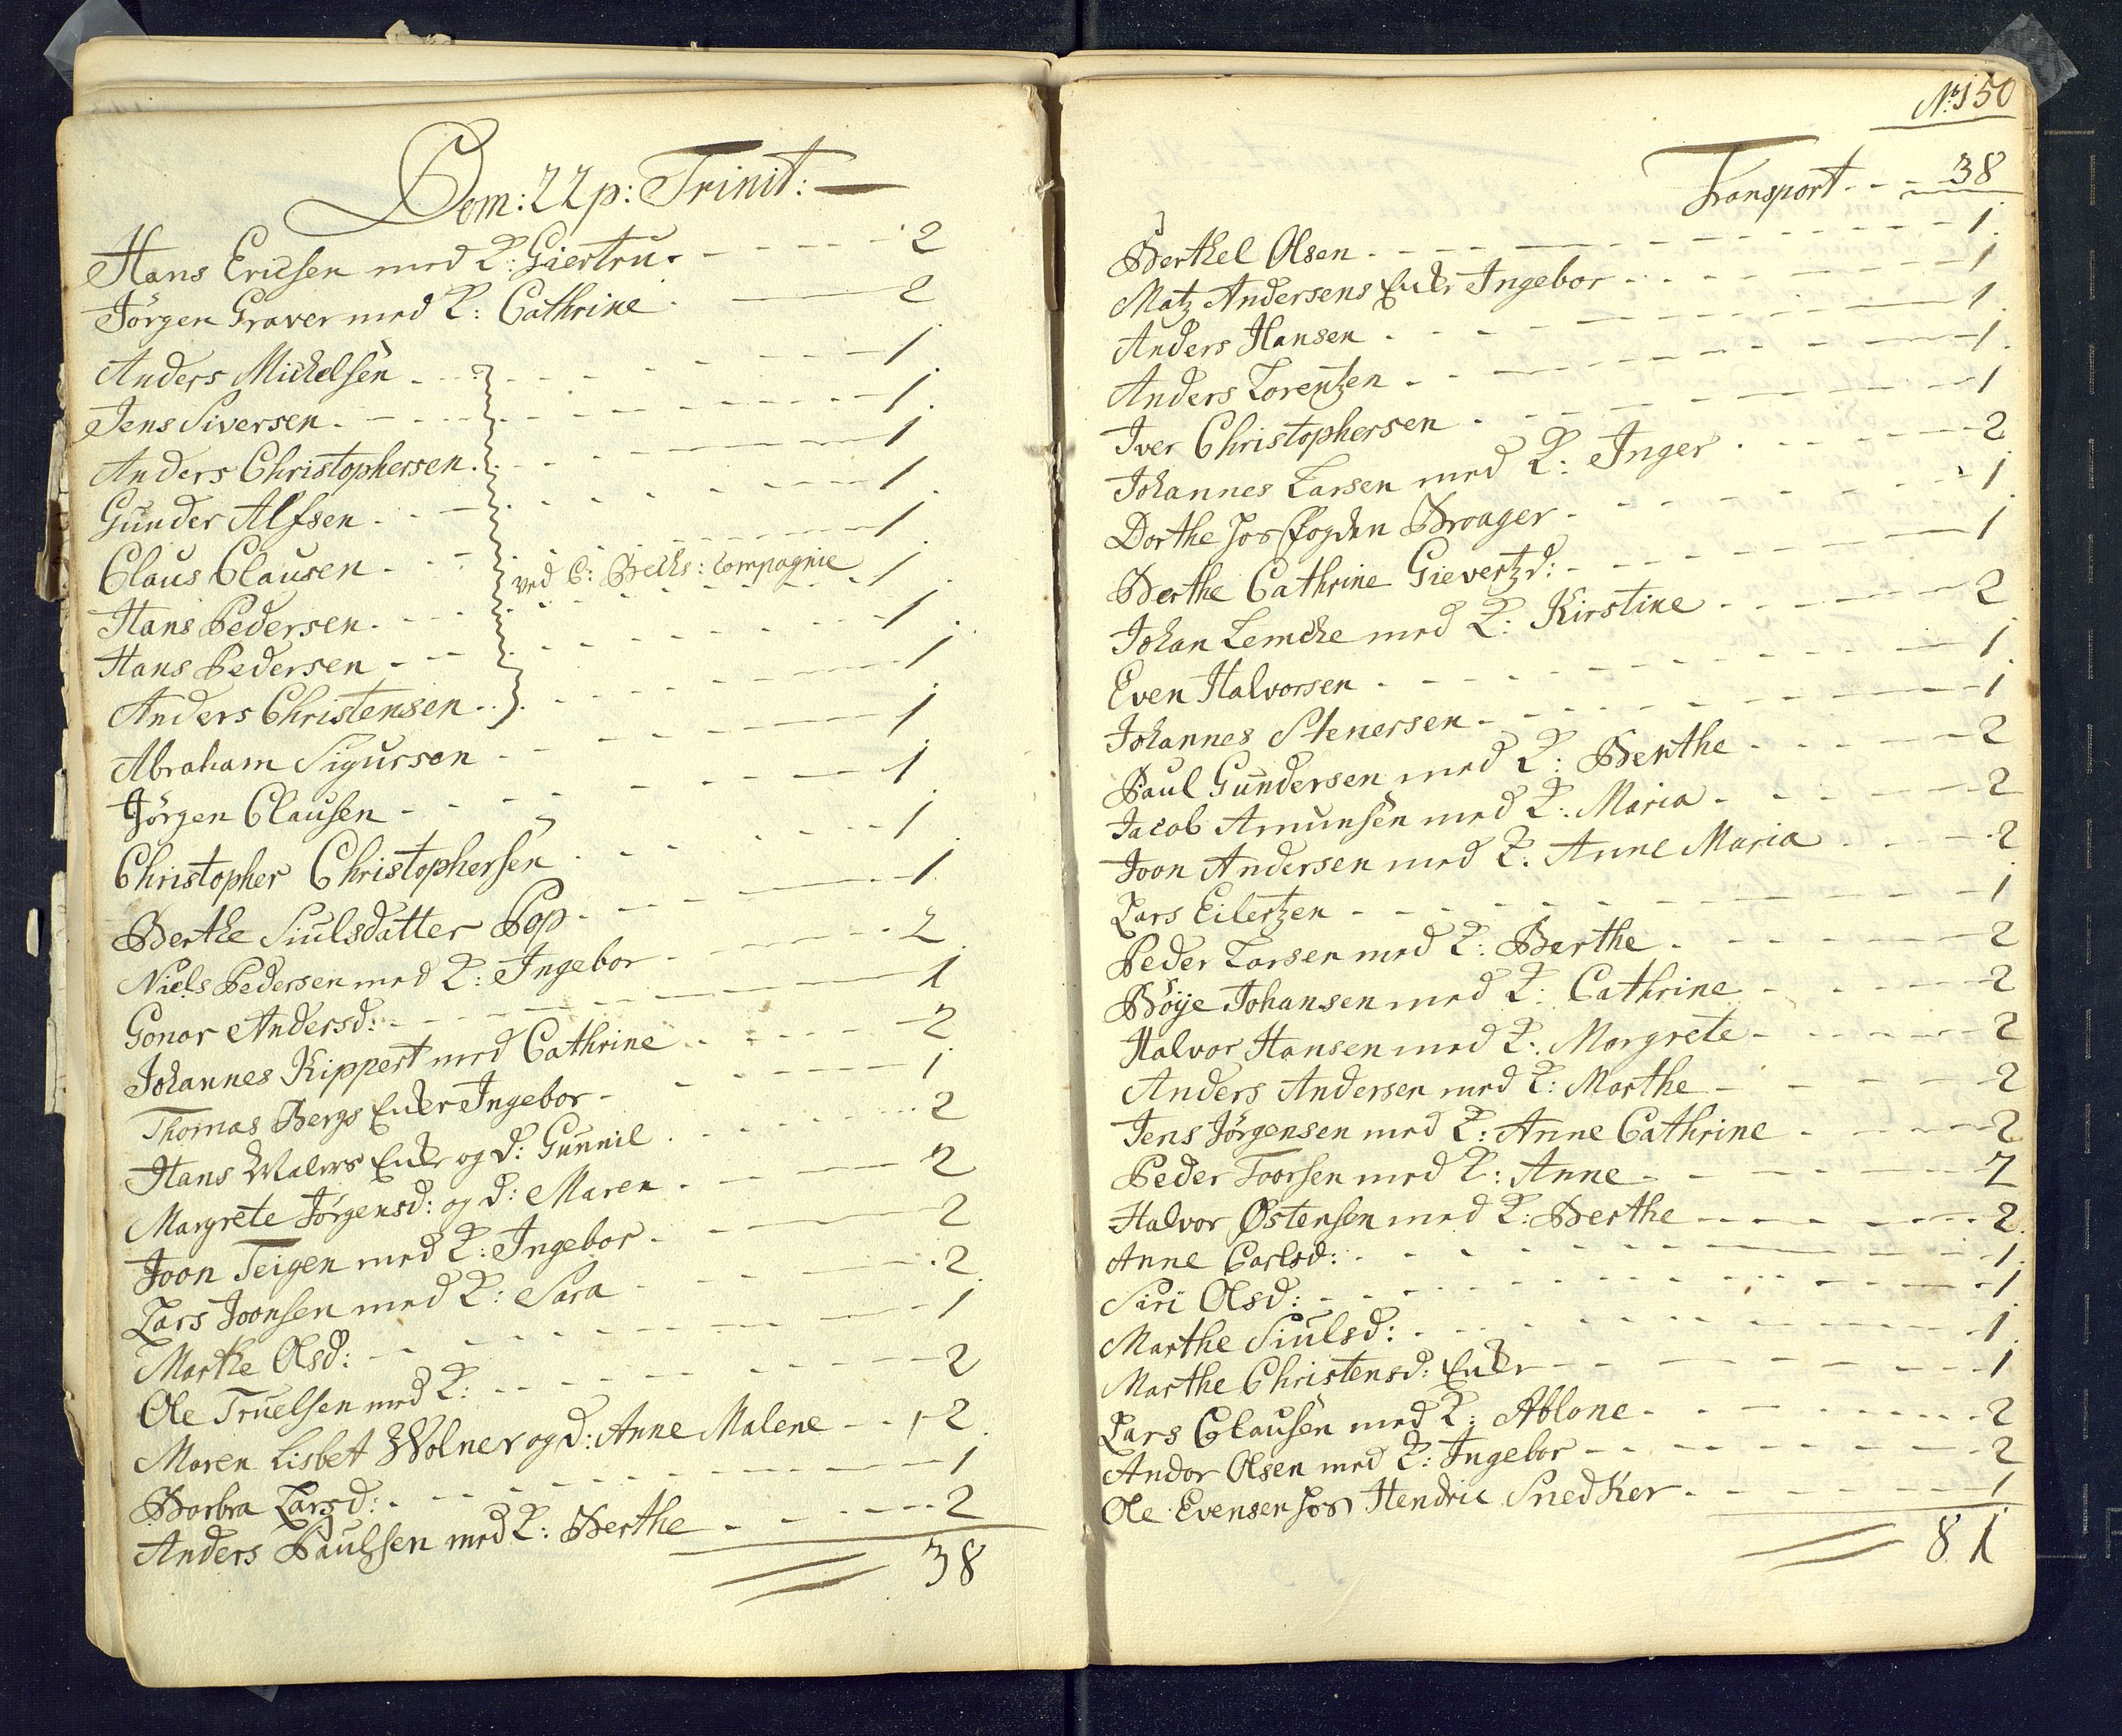 Dom: 22 p: Trinit:
Hans Ericsen med K: Giertru. 2
Jörgen Graver med K: Cathrine 2
Anders Michelsen 1
Jens Siversen 1
Anders Christophersen 1
Gunder Alfsen 1
Claus Clausen 1
ved C: Becks: Compagnie
Hans Pedersen 1
Hans Pedersen 1
Anders Christensen 1
Abraham Sigursen 1
Jörgen Clausen 1
Christopher Christophersen 1
Berthe Siulsdatter Pop 1
Niels Pedersen med K: Ingebor 2
Gonor Andersd: 1
Johannes Kippert med Cathrine 2
Thomas Bergs Enke Ingebor 1
Hans Walers Enke og d: Gunnil 2
Margrete Jörgensd: og d: Maren 2
Joon Teigen med K: Ingebor 2
Lars Joonsen med K: Sara 2
Marthe Olsd: 1
Ole Truelsen med K: 2
Maren Lisbet Wolner og d: Anne Malene 2
Barbra Larsd: 1
Anders Paulsen med K: Berthe 2
38
No 150
Transport 38
Berthel Olsen 1
Matz Andersens Enke Ingebor 1
Anders Hansen 1
Anders Lorentzen 1
Iver Christophersen 1
Johannes Larsen med K: Inger 2
Dorthe hos Fogden Broager 1
Berthe Cathrine Gievertzd: 1
Johan Lemche med K: Kirstine 2
Even Halvorsen 1
Johannes Stenersen 1
Paul Gundersen med K: Berthe 2
Jacob Amunsen med K: Maria 2
Joon Andersen med K: Anne Maria 2
Lars Eilertzen 1
Peder Larsen med K: Berthe 2
Böye Johansen med K: Cathrine 2
Halvor Hansen med K: Margrete 2
Anders Andersen med K: Marthe 2
Jens Jörgensen med K: Anne Cathrine 2
Peder Toorsen med K: Anne 2
Halvor Østensen med K: Berthe 2
Anne Carlsd: 1
Siri Olsd: 1
Marthe Siulsd: 1
Marthe Christensd: Enke 1
Lars Clausen med K: Ablone 2
Andor Olsen med K: Ingebor 2
Ole Evensen hos Hendric Snedker 1
81